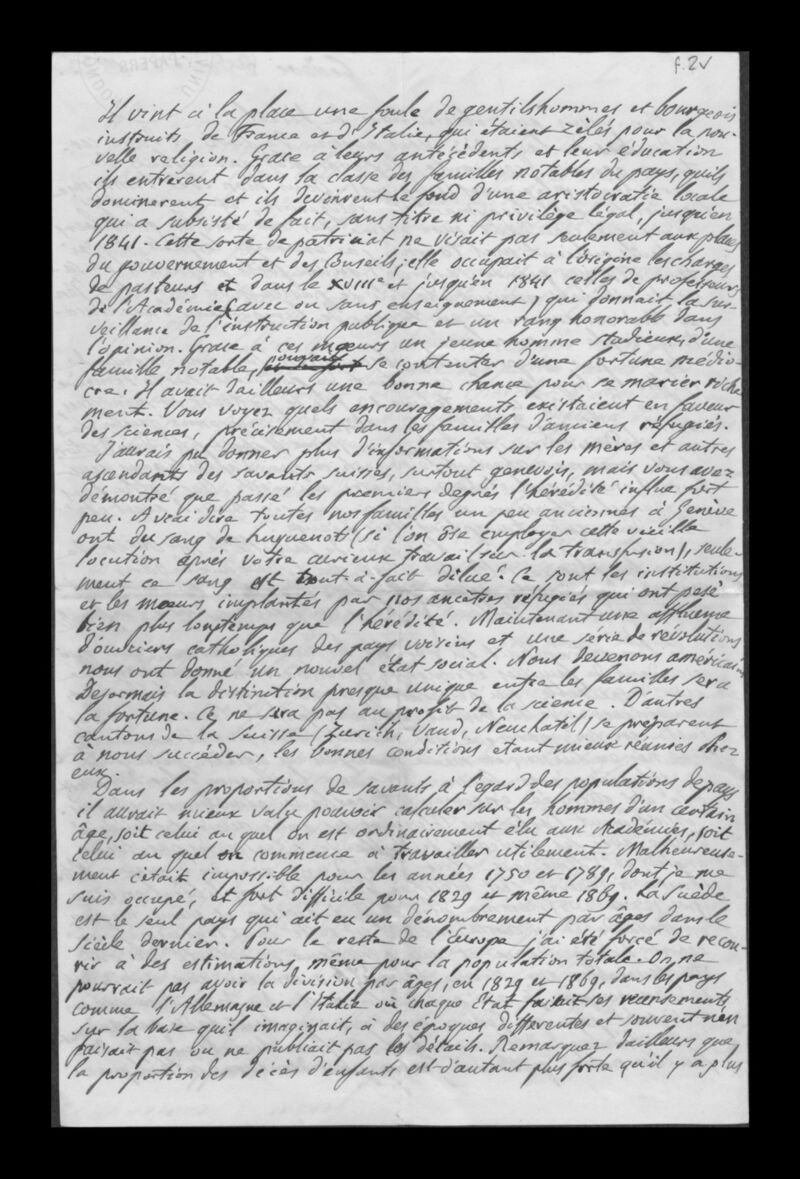 f. 2v
Il vint à la place une foule de gentilshommes et bourgeois
instruits, de France et d'Italie, qui étaient zèlés pour la nou-
velle religion. Grace à leurs antécédents et leur éducation
ils entrèrent dans la classe des familles notables du pays, qu'ils
dominerent et ils devinrent le fond d'une aristocratie locale
qui a subsisté de fait, sans titre ni privilège légal, jusqu'en
1841. Cette sorte de patriciat ne visait pas seulement aux places
du gouvernement et des Conseils; elle occupait à l'origine les charges
de pasteurs et dans le XVIIIe et jusqu'en 1841 celles de professeurs
de l'Académie (avec ou sans enseignement) qui donnait la sur-
veillance de l'instruction publique et un rang honorable dans
l'opinion. Grace à ces mœurs un jeune homme studieux, d'une
famille notable, pouvait se contenter d'une fortune médio-
cre. Il avait dailleurs une bonne chance pour se marier riche
ment. Vous voyez quels encouragements existaient en faveur
des sciences, précisement dans les familles d'anciens réfugiés.
J'aurais pu donner plus d'informations sur les mères et autres
ascendants des savants suisses, surtout genevois, mais vous avez
démontré que passé les premiers degrés l'hérédité influe fort
peu. A vrai dire toutes nos familles un peu anciennes à Genève
ont du sang de huguenots (si l'on ôse employer cette vieille
locution après votre curieux travail sur la transfusion), seule-
ment ce sang est tout-à-fait dilué. Ce sont les institutions
et les mœurs implantés par nos ancêtres refugiés qui ont pesé
bien plus longtemps que l'hérédité. Maintenant une affluence
d'ouvriers catholiques des pays voisins et une série de revolutions
nous ont donné un nouvel état social. Nous devenons américains
Desormais la distinction presque unique entre les familles sera
la fortune. Ce ne sera pas au profit de la science. D'autres
cantons de la Suisse (Zurich, Vaud, Neuchatel) se préparent
à nous succéder, les bonnes conditions étant mieux réunies chez
eux.
Dans les proportions de savants à l'egard des populations de pays
il aurait mieux valu pouvoir calculer sur les hommes d'un certain
âge, soit celui au quel on est ordinairement élu aux Académies, soit
celui au quel on commence à travailler utilement. Malheureuse-
ment c'était impossible pour les années 1750 et 1789, dont je me
suis occupé, et fort difficile pour 1829 et même 1869. La Suède
est le seul pays qui ait eu un dénombrement par âges dans le
siècle dernier. Pour le reste de l'Europe j'ai été forcé de recou-
rir à des estimations, même pour la population totale. On ne
pourrait pas avoir la division par âges, en 1829 et 1869, dans les pays
comme l'Allemagne et l'Italie où chaque Etat faisait ses recensements
sur la base qu'il imaginait, à des époques differentes et souvent n'en
faisait pas ou ne publiait pas les détails. Remarquez dailleurs que
la proportion des décès d'enfants est d'autant plus forte qu'il y a plus